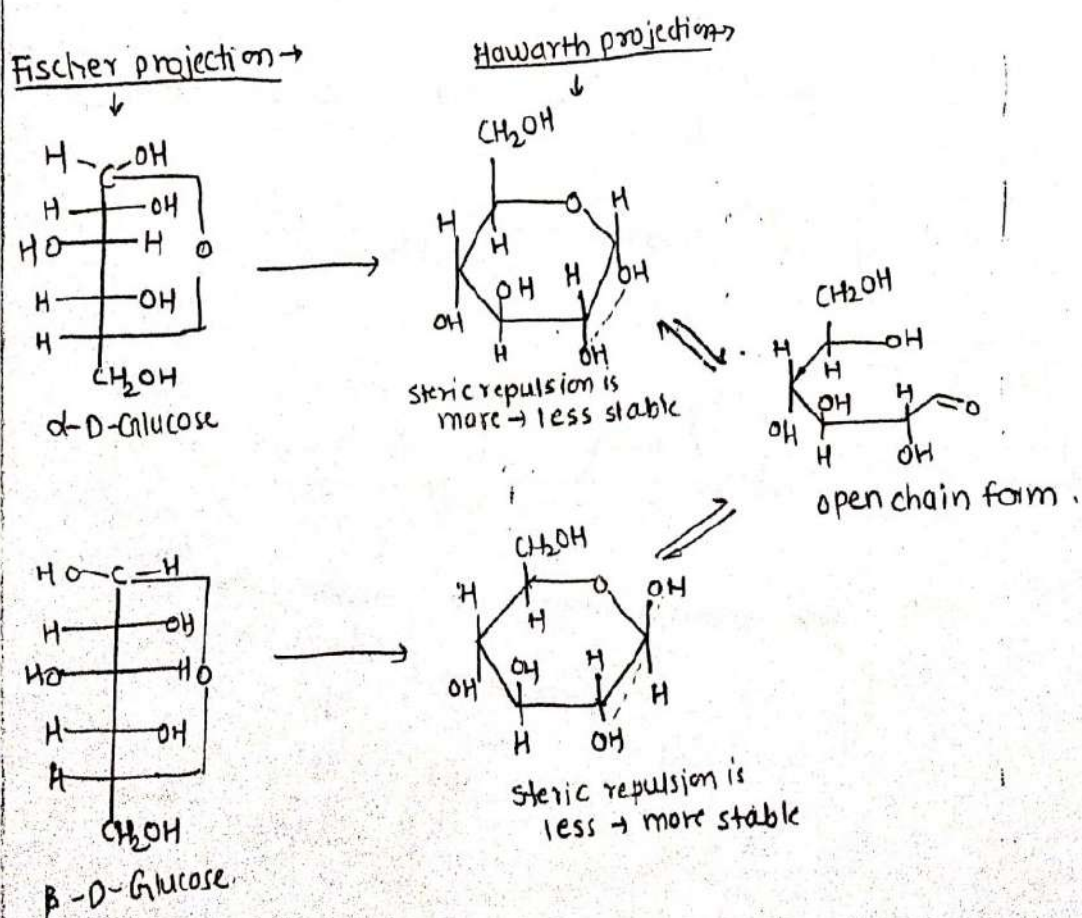 Fischer projection →
↓
H OH
C
H OH
HO H
O
H OH
H
CH₂OH
α-D-Glucose
Hawarth projection→
↓
CH₂OH
O H
H
H
OH H OH
OH
H OH
Steric repulsion is
more → less stable
CH₂OH
H OH
H
OH H O
OH
H OH
open chain form.
HO C H
H OH
HO H O
H OH
H
CH₂OH
β-D-Glucose.
CH₂OH
O OH
H
H
OH H
OH H
H OH
Steric repulsion is
less → more stable